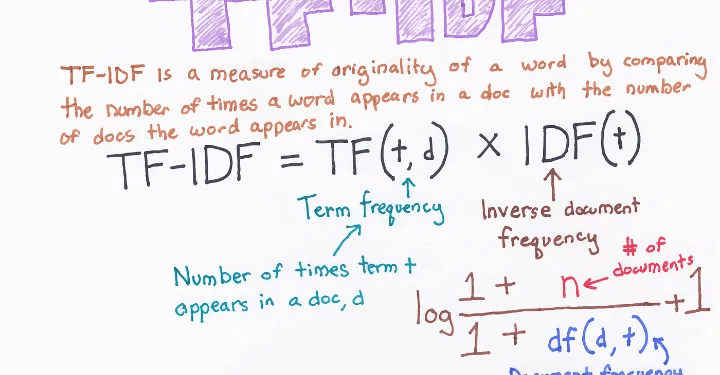 TF-IDF
TF-IDF is a measure of originality of a word by comparing
the number of times a word appears in a doc with the number
of docs the word appears in.
TF-IDF = TF(t, d) × IDF(t)
Term frequency
Inverse document
frequency
Number of times term t
appears in a doc, d
# of
documents
log 1 + n
1 + df(d, t) + 1
Document frequency